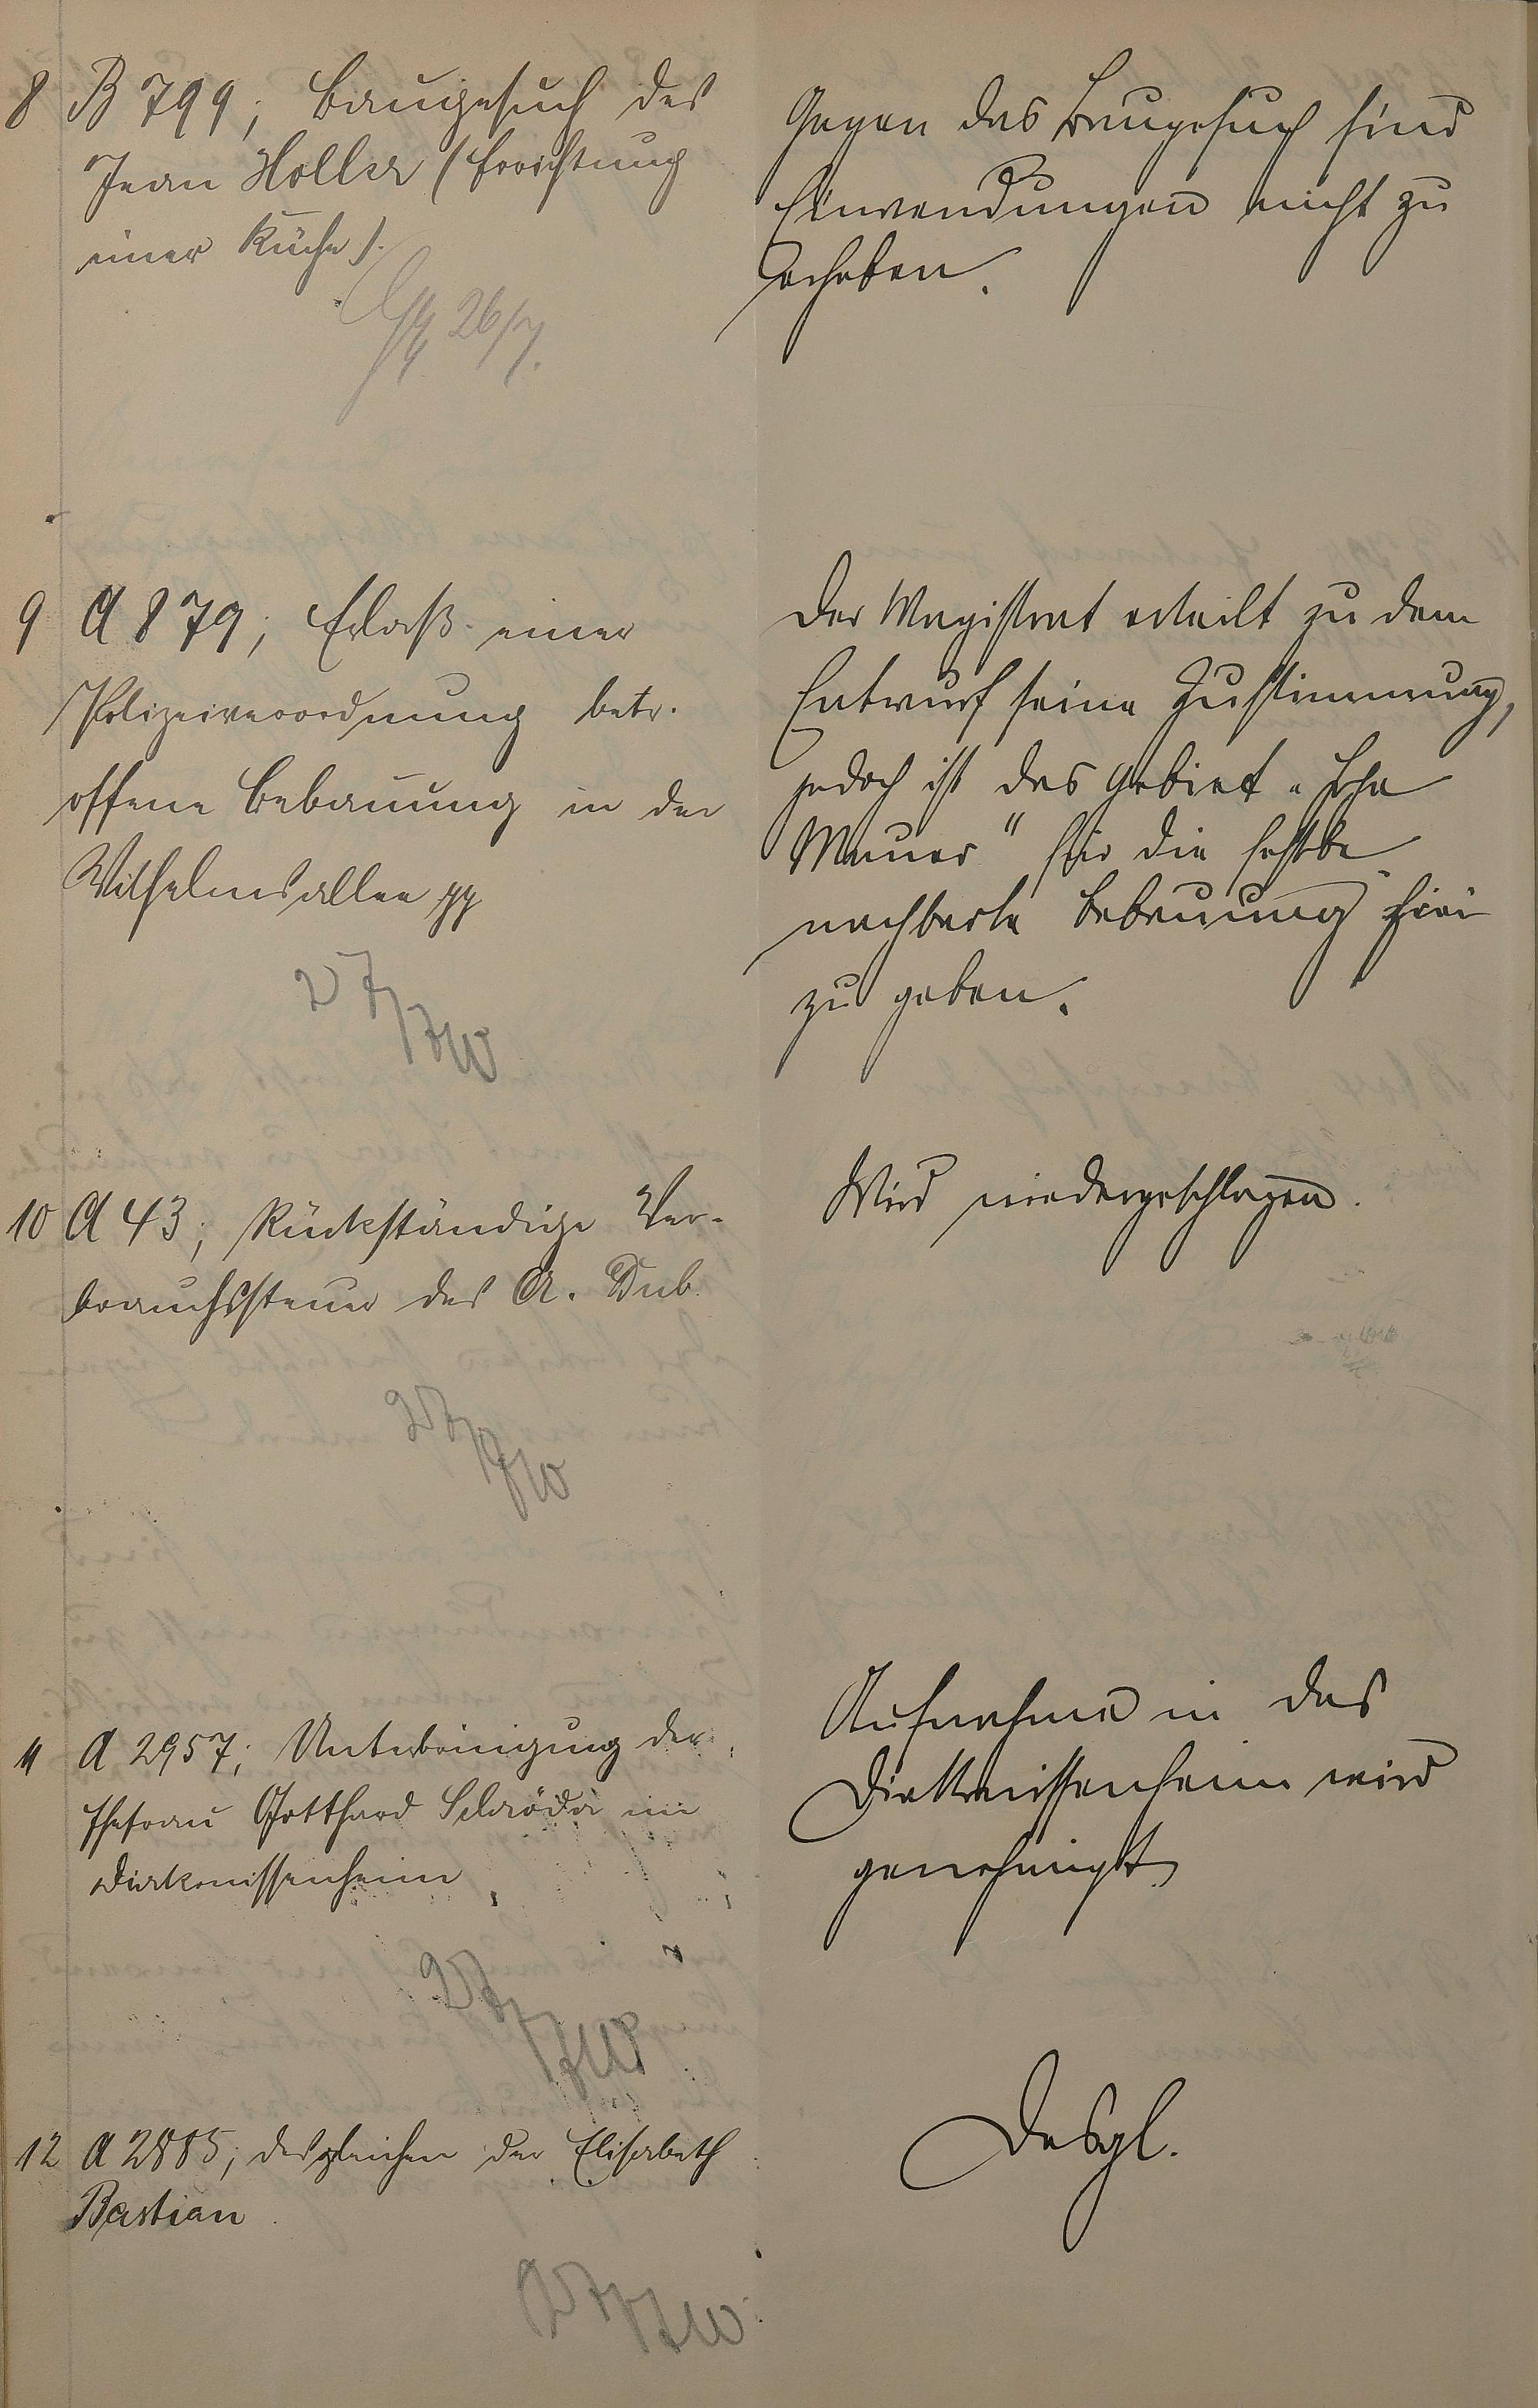 8 B 799; Baugesuch des
Jean Holler (Errichtung
einer Küche).
26/7.
Gegen das Baugesuch sind
Einwendungen nicht zu
erheben.
9 A 879; Erlaß einer
Polizeiverordnung betr.
offene Bebauung in der
Wilhelmsallee pp
27/7 W
Der Magistrat erteilt zu dem
Entwurf seine Zustimmung,
jedoch ist das Gebiet "Hohe
Mauer" für die
Bebauung frei
zu geben.
10 A 43; Rückständige Ver-
brauchssteuer des A. Dub.
27/7 W
Wird niedergeschlagen.
11 A 2957; Unterbringung der
Ehefrau Gotthard Schröder im
Diakonissenheim
27/7 W
Aufnahme in das
Diakonissenheim wird
genehmigt
12 A 2885; desgleichen der Elisabeth
Bastian
27/7 W
Desgl.